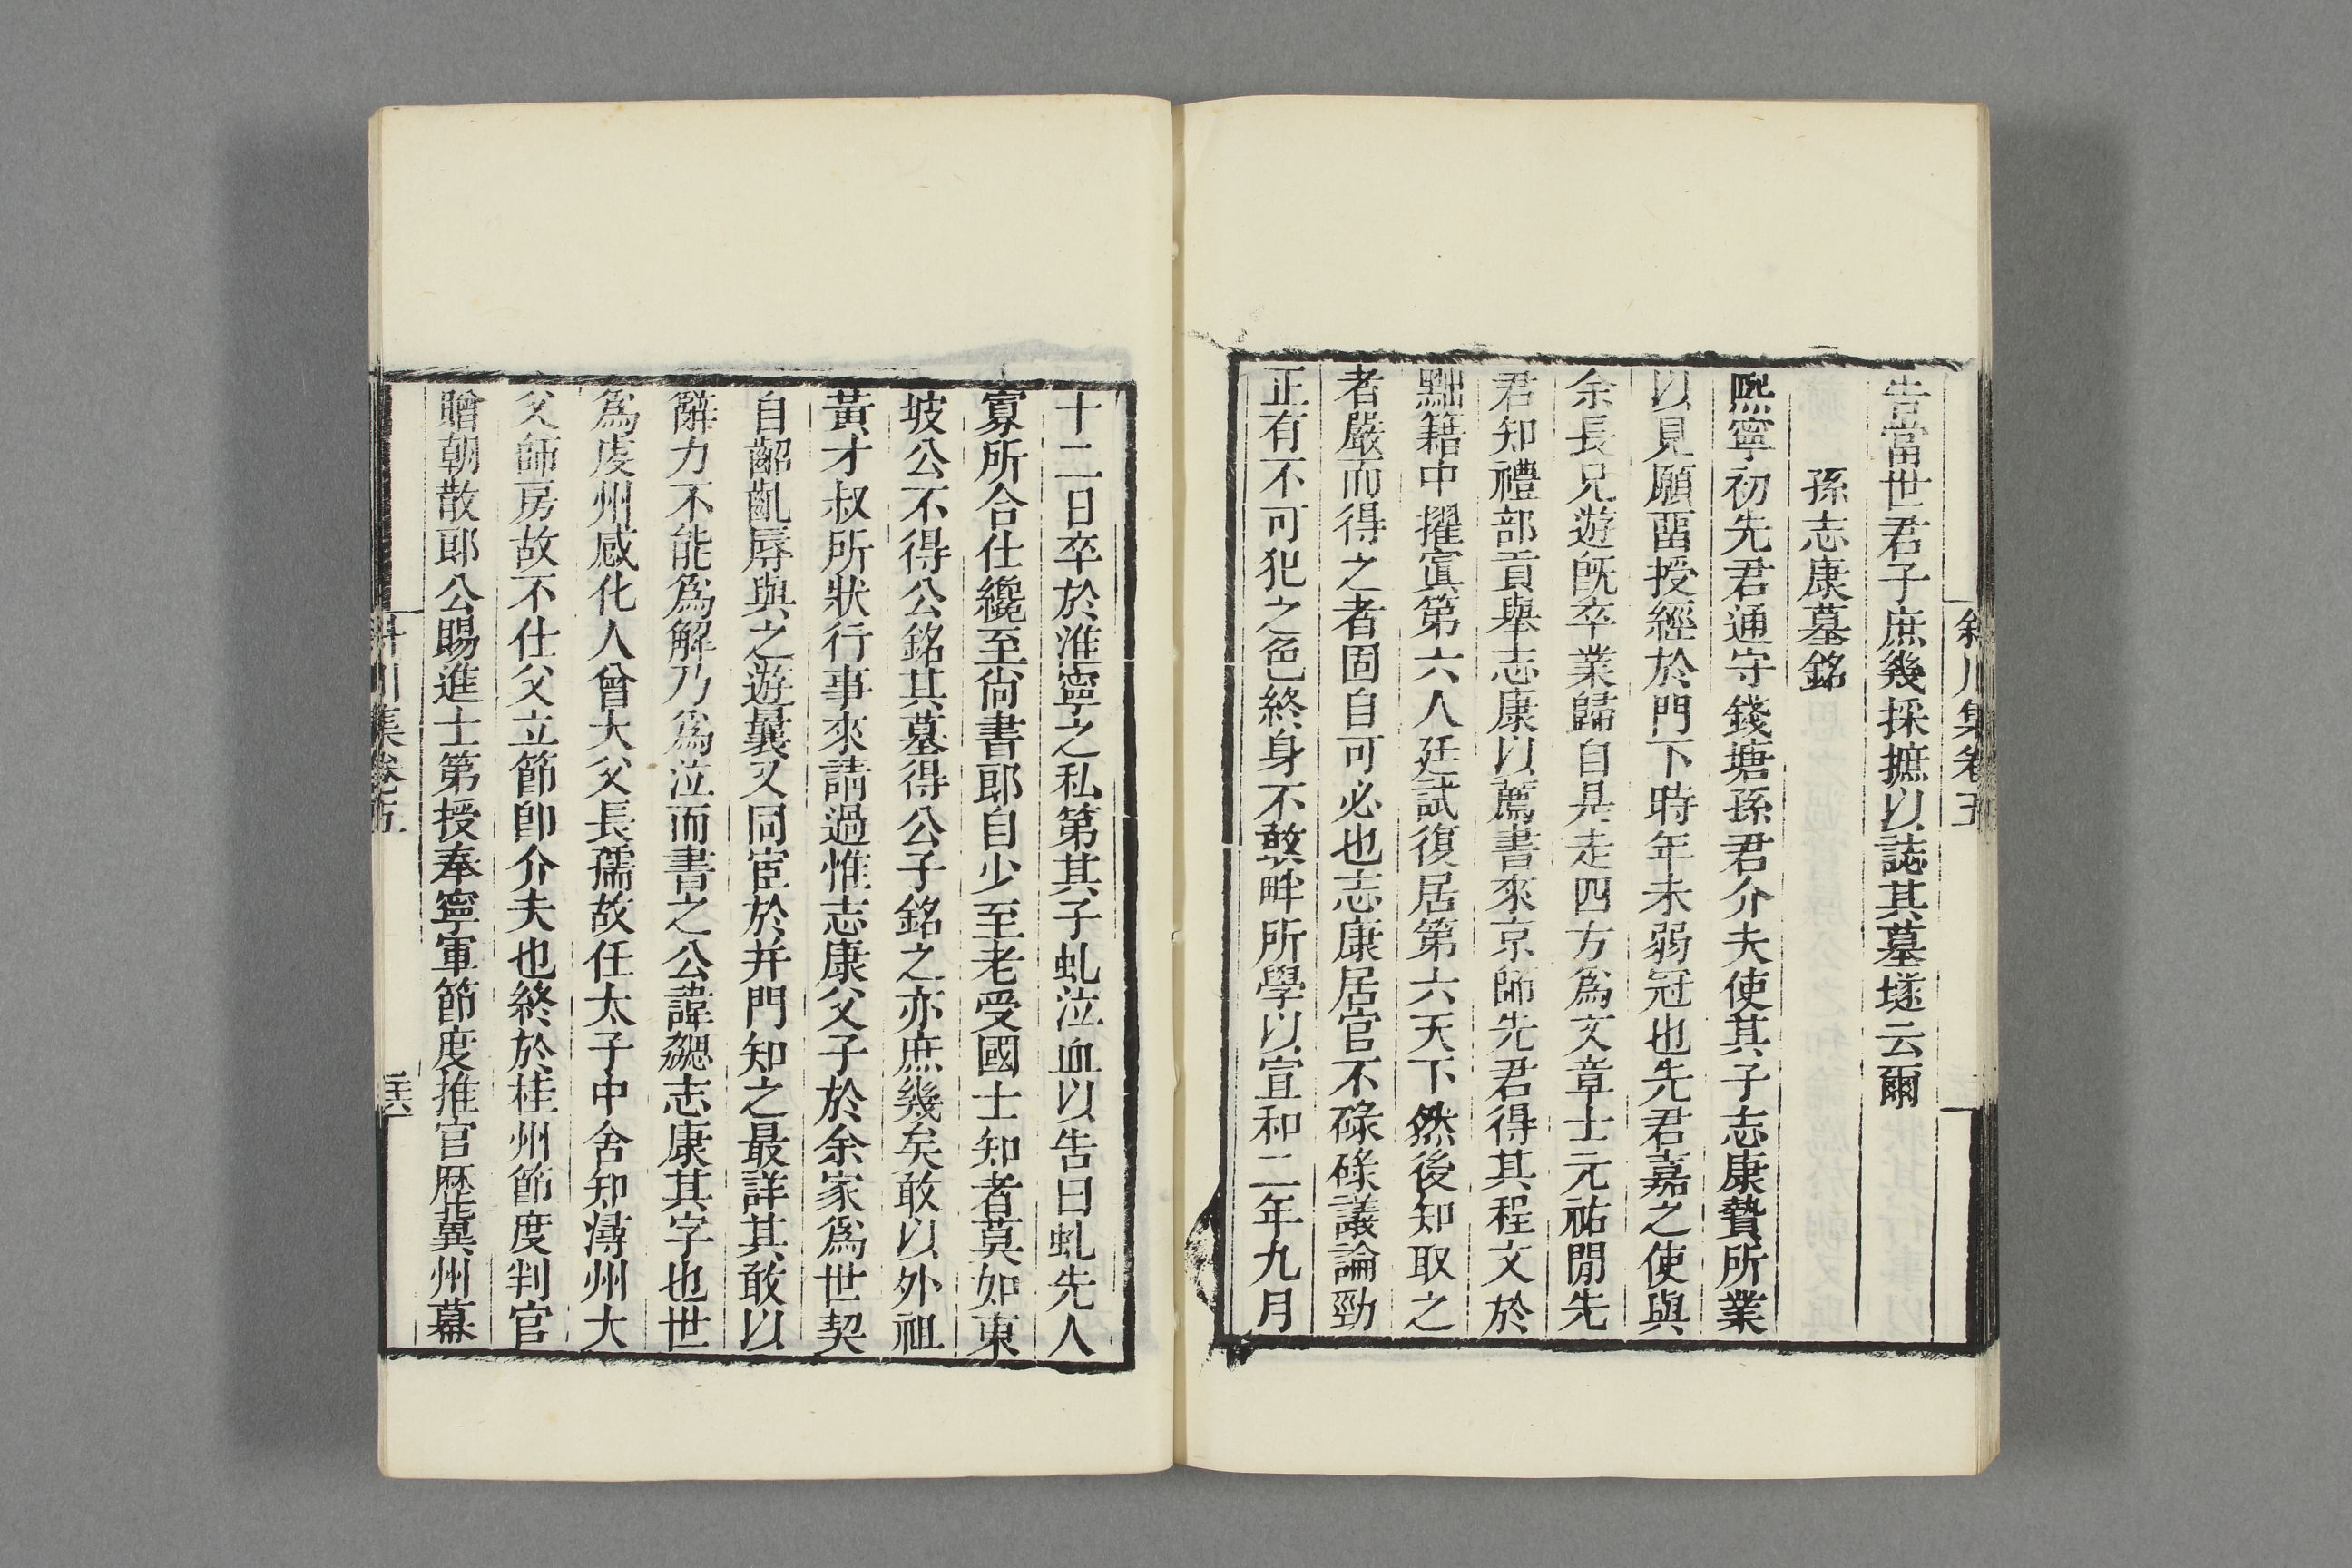 斜川集卷五
告當世君子庶幾採摭以誌其墓塋云爾
孫志康墓銘
熙寧初先君通守錢塘孫君介夫使其子志康贄所業
以見願畱授經於門下時年未弱冠也先君嘉之使與
余長兄遊旣卒業歸自是走四方爲文章士元祐閒先
君知禮部貢舉志康以薦書來京師先君得其程文於
黜籍中擢寘第六人廷試復居第六天下然後知取之
者嚴而得之者固自可必也志康居官不碌碌議論勁
正有不可犯之色終身不敢畔所學以宣和二年九月
十二日卒於淮寧之私第其子虬泣血以告曰虬先人
寡所合仕纔至尙書郎自少至老受國士知者莫如東
坡公不得公銘其墓得公子銘之亦庶幾矣敢以外祖
黃才叔所狀行事來請過惟志康父子於余家爲世契
自齠齔辱與之遊曩又同宦於并門知之最詳其敢以
辭力不能爲解乃爲泣而書之公諱勰志康其字也世
爲虔州感化人曾大父長孺故任太子中舍知潯州大
父師房故不仕父立節卽介夫也終於桂州節度判官
贈朝散郎公賜進士第授奉寧軍節度推官歷冀州幕
斜川集卷五